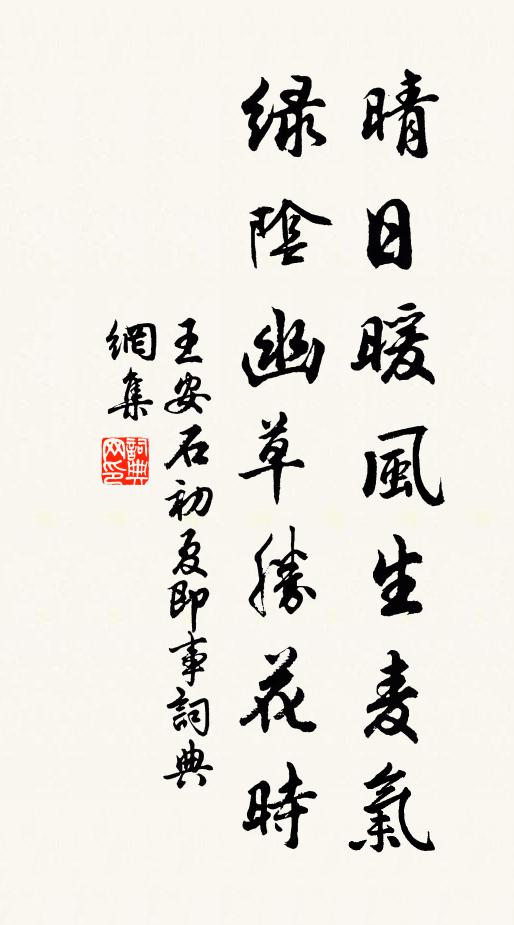 晴日暖風生麦氣
緑陰幽草勝花時
王安石初夏即事詞典
網集
詞典网印